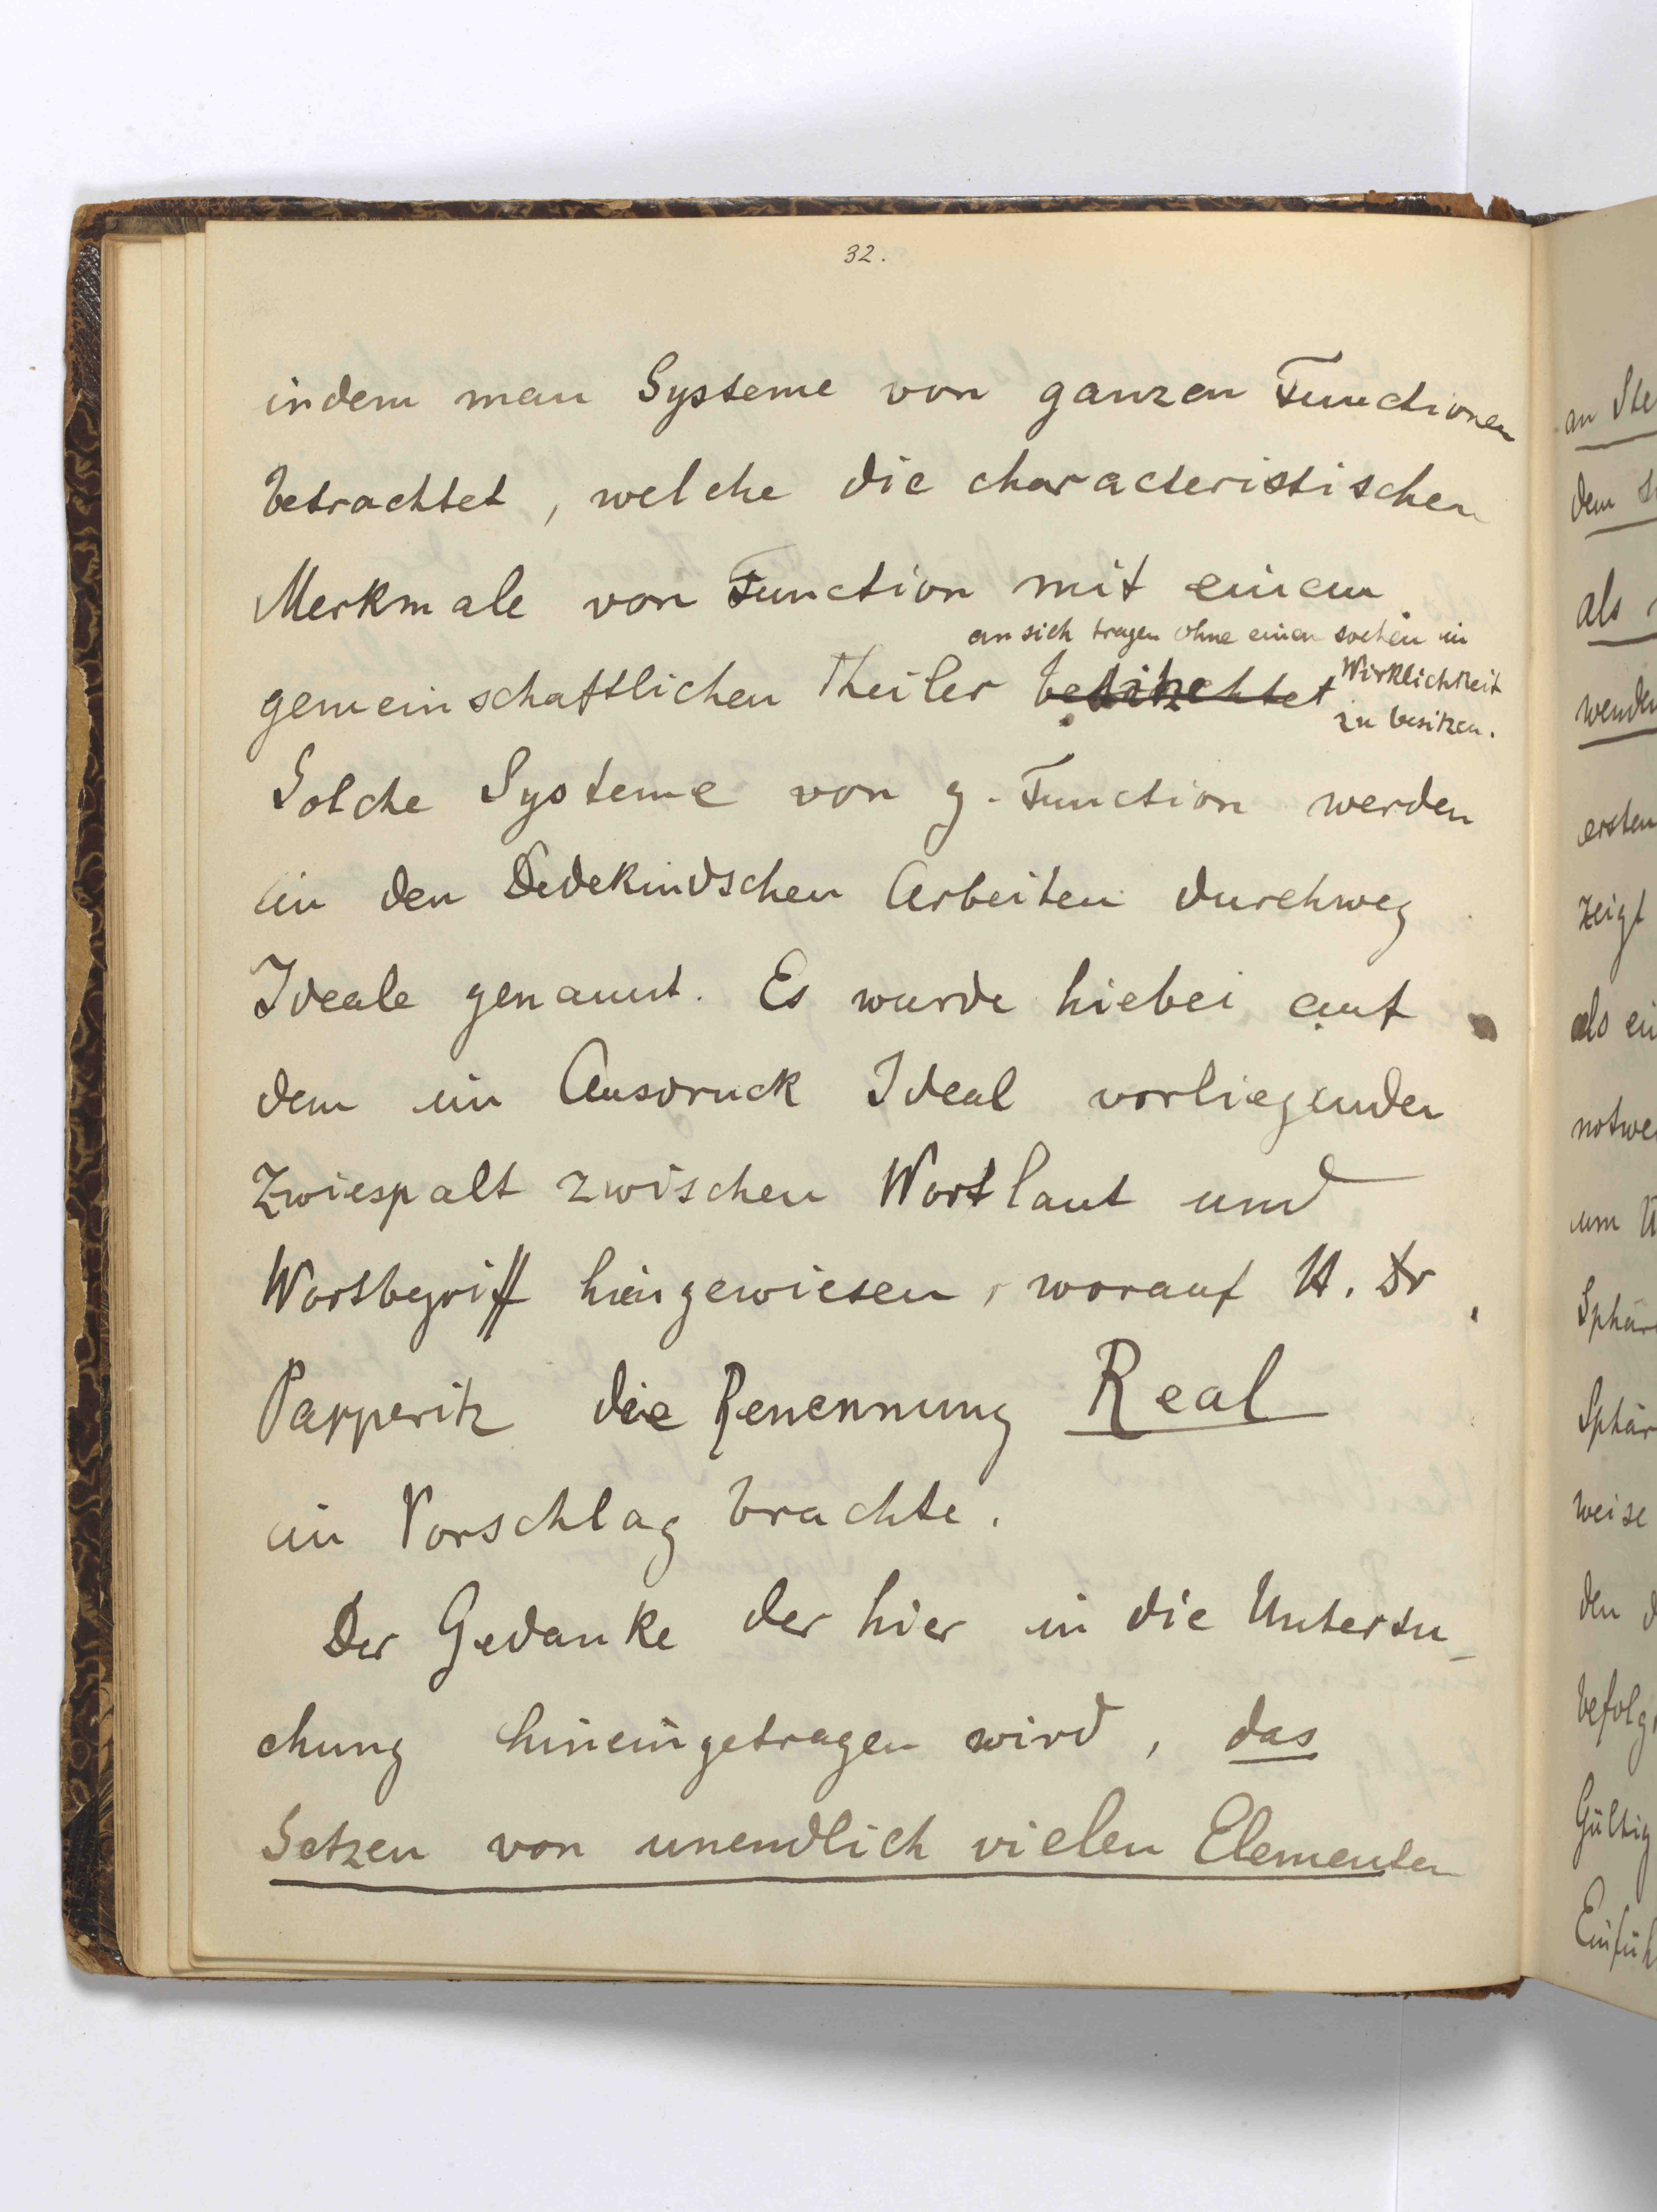 32.
indem man Systeme von ganzen Functionen
betrachtet, welche die characteristischen
Merkmale von Function mit einem
an sich tragen ohne einen solchen in
gemeinschaftlichen Theiler
Wirklichkeit
zu besitzen.
Solche Systeme von g. Function werden
in den Dedekindschen Arbeiten durchweg
Ideale genannt. Es wurde hiebei auf
dem im Ausdruck Ideal vorliegenden
Zwiespalt zwischen Wortlaut und
Wortbegriff hingewiesen, worauf H. Dr.
Papperitz die Benennung Real
in Vorschlag brachte.
Der Gedanke der hier in die Untersu-
chung hineingetragen wird, das
Setzen von unendlich vielen Elementen
an Ste
dem S
als
wenden
ersten
zeigt
als ei
notwe
um U
Sphär
Sphär
weise
den d
befolg
Gültig
Einfüh